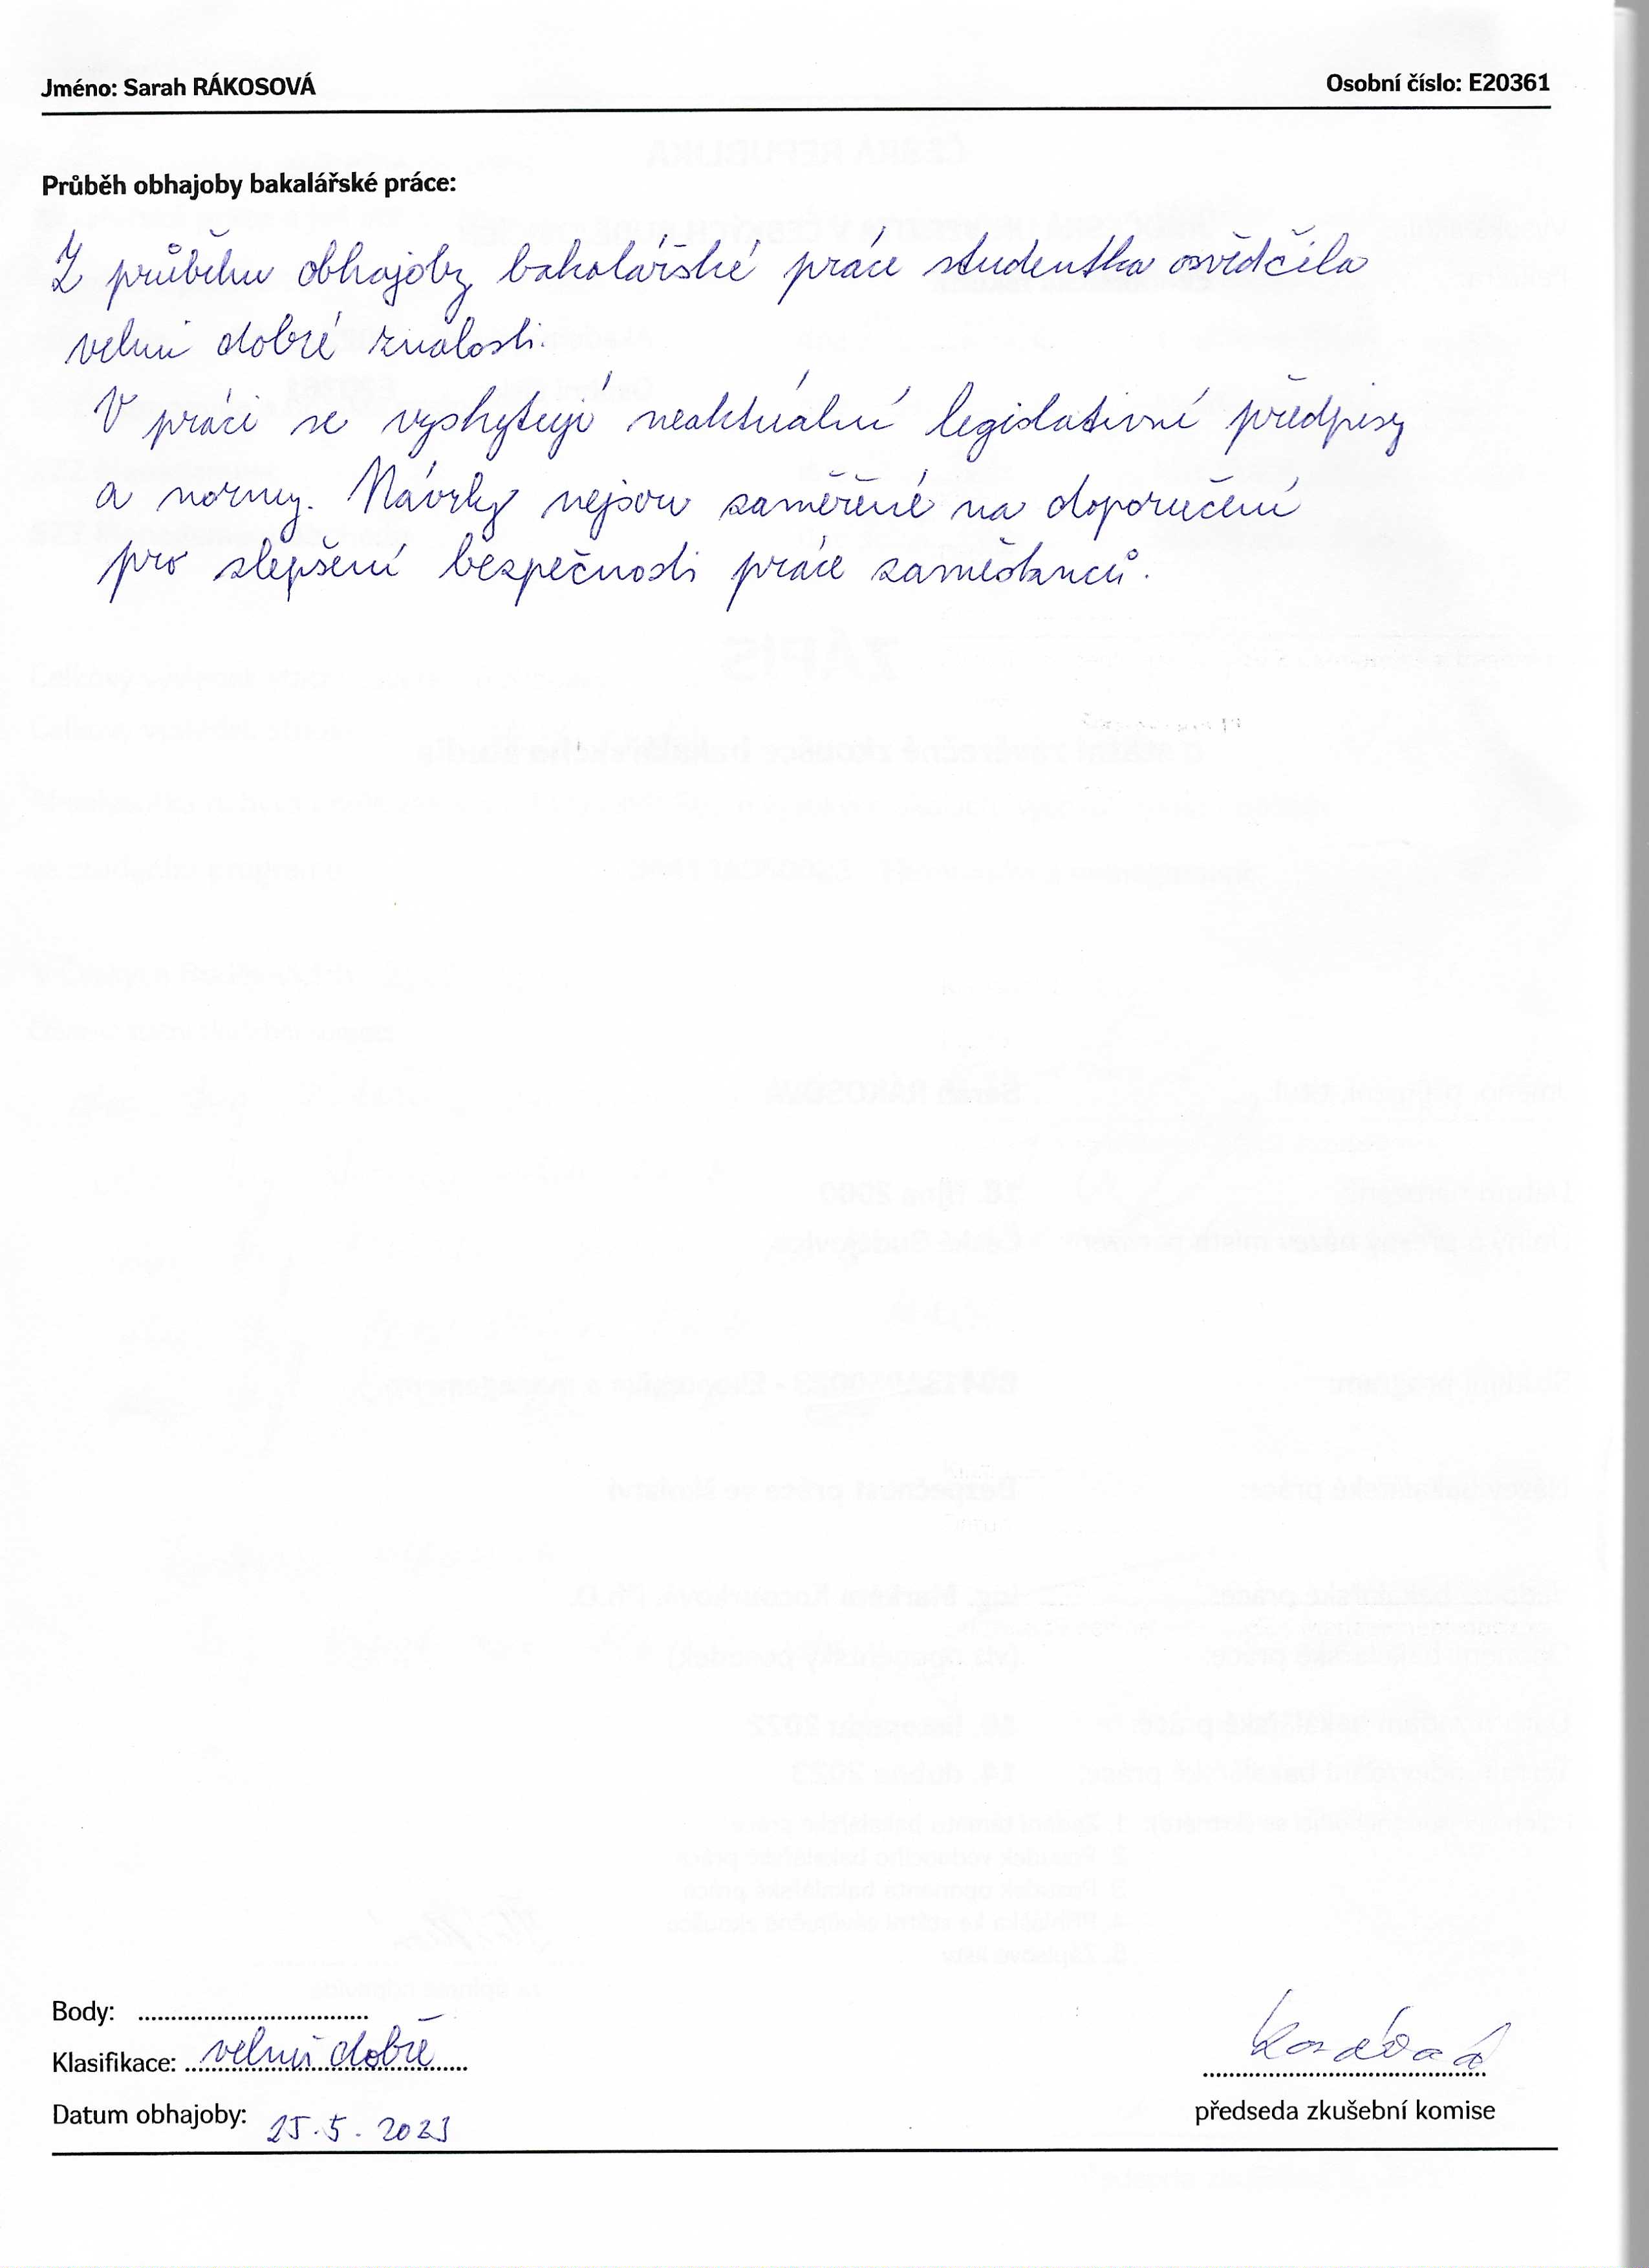 Jméno: Sarah RÁKOSOVÁ Osobní číslo: E20361
Průběh obhajoby bakalářské práce:
Z průběhu obhajoby bakalářské práce studentka osvědčila
velmi dobré znalosti.
V práci se vyskytují neaktuální legislativní předpisy
a normy. Návrhy nejsou zaměřené na doporučení
pro zlepšení bezpečnosti práce zaměstnanců.
Body:
Klasifikace: velmi dobře
Datum obhajoby: 25.5.2023
předseda zkušební komise